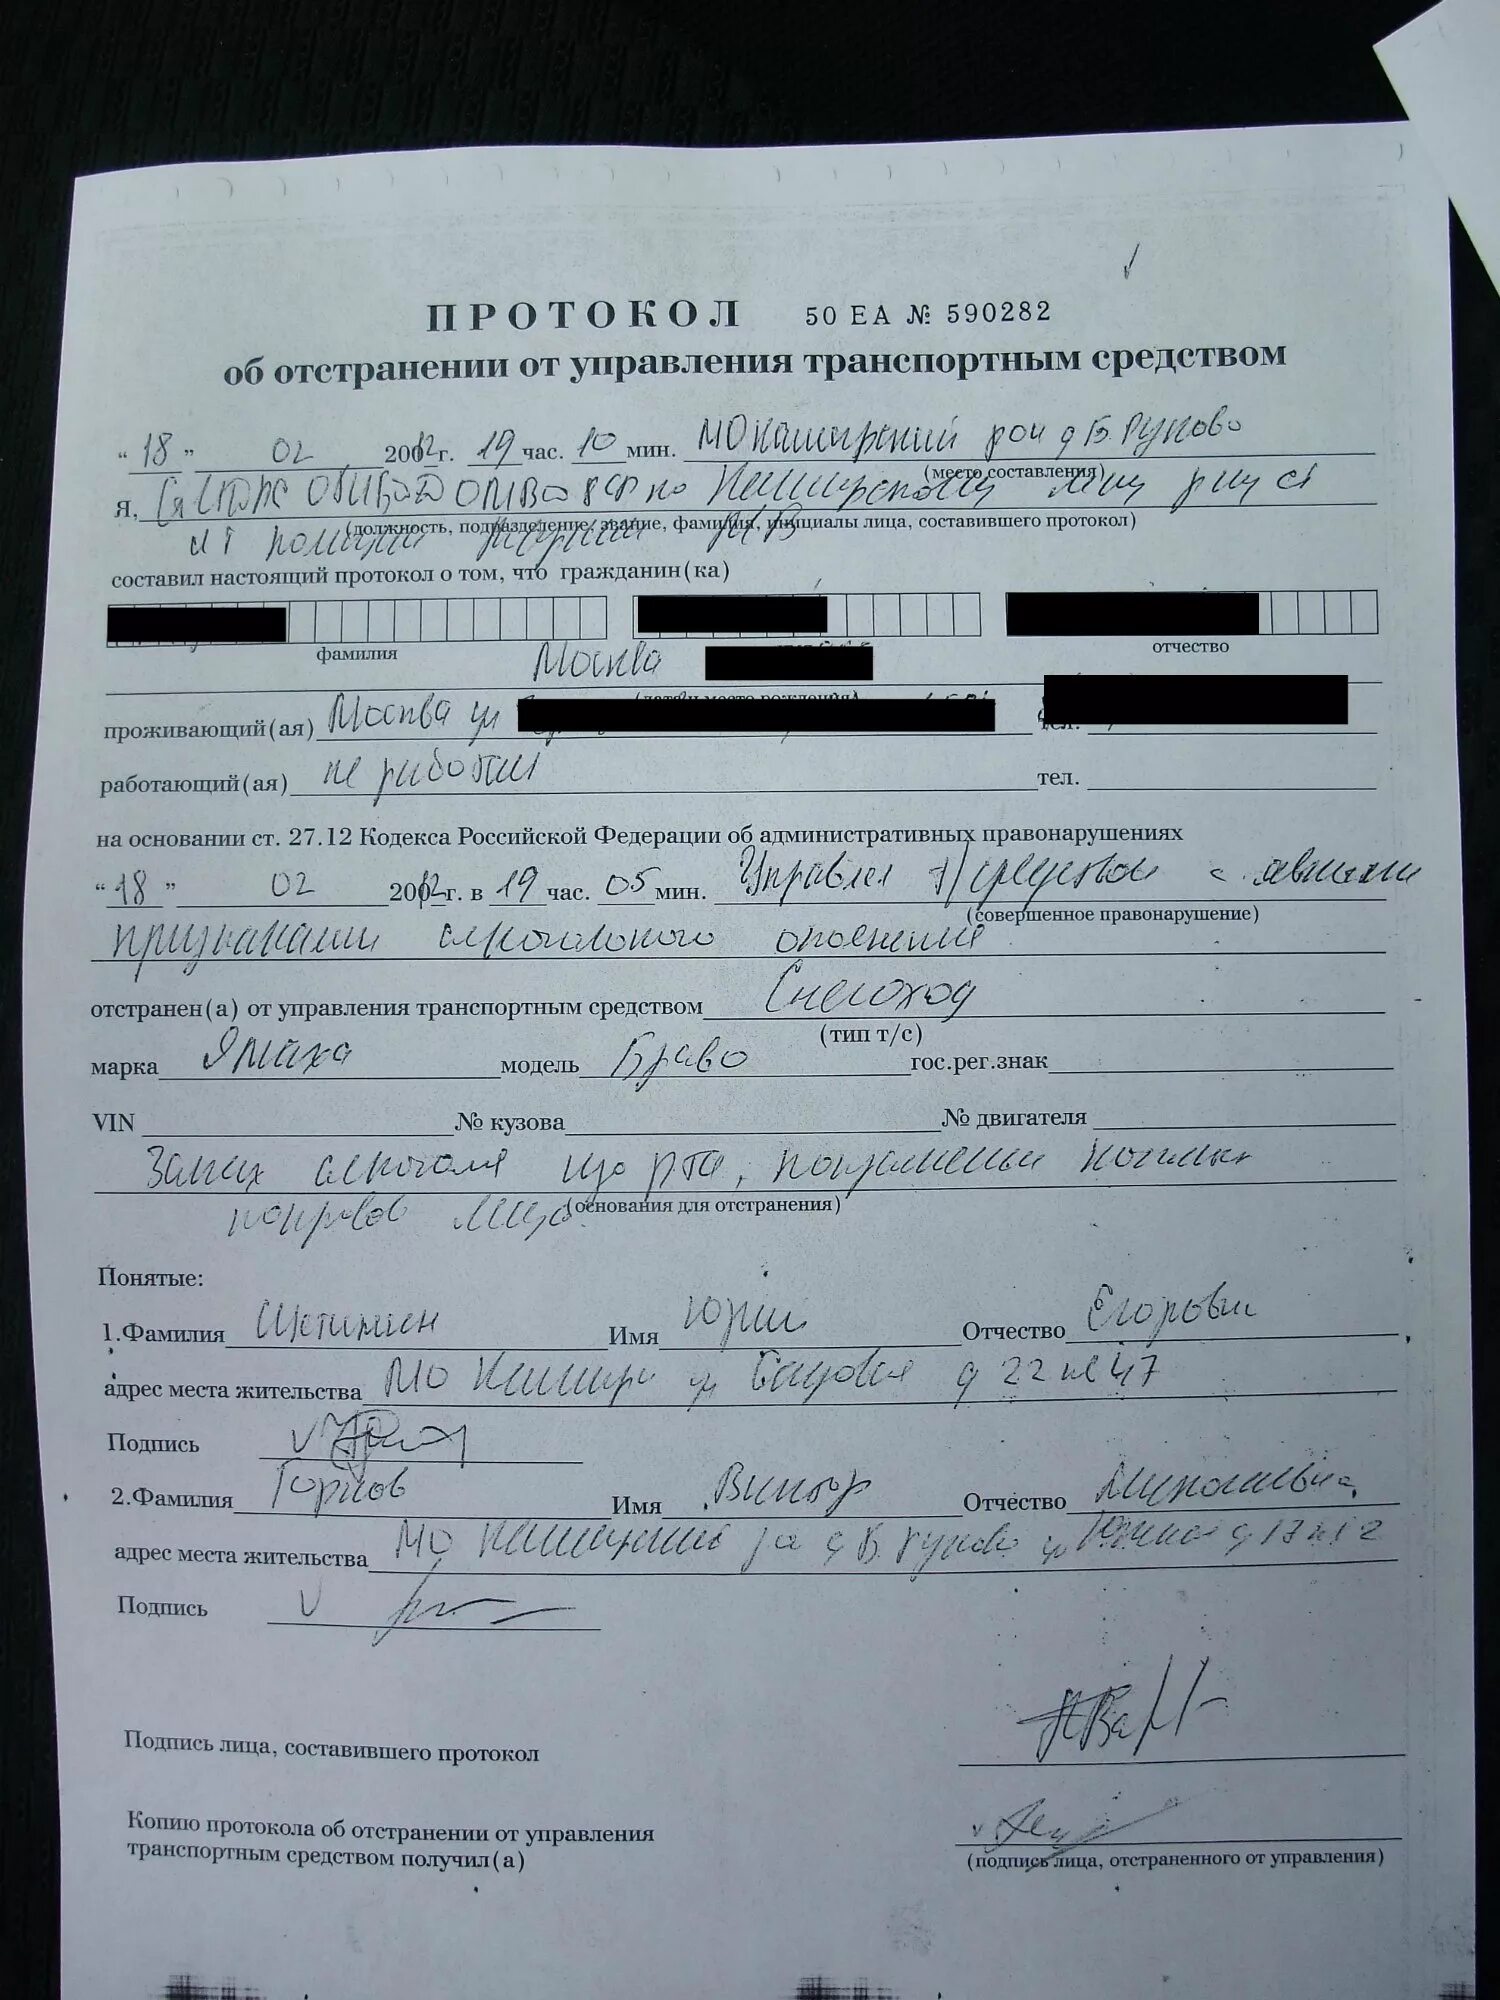 ПРОТОКОЛ 50 ЕА № 590282
об отстранении от управления транспортным средством
“18” 02 2012г. 19 час. 10 мин. МО Каширский рон д Б. Руново
(место составления)
Я,
(должность, подразделение, звание, фамилия, инициалы лица, составившего протокол)
составил настоящий протокол о том, что гражданин(ка)
фамилия отчество
Москва
(дата и место рождения)
проживающий(ая) Москва ул тел.
работающий(ая) не работает тел.
на основании ст. 27.12 Кодекса Российской Федерации об административных правонарушениях
“18” 02 2012г. в 19 час. 05 мин. Управлял т/средством с явными
(совершенное правонарушение)
признаками алкогольного опьянения
отстранен(а) от управления транспортным средством Снегоход
(тип т/с)
марка Ямаха модель Браво гос.рег.знак
VIN № кузова № двигателя
Запах алкоголя изо рта, изменение кожных
(основания для отстранения)
покровов лица
Понятые:
1.Фамилия Имя Юрий Отчество Егорович
адрес места жительства МО Кашира ул д 22 кв 47
Подпись
2.Фамилия Горшов Имя Виктор Отчество
адрес места жительства МО Каширский д Б. Руново ул Южная д 13
Подпись
Подпись лица, составившего протокол
Копию протокола об отстранении от управления
транспортным средством получил(а)
(подпись лица, отстраненного от управления)